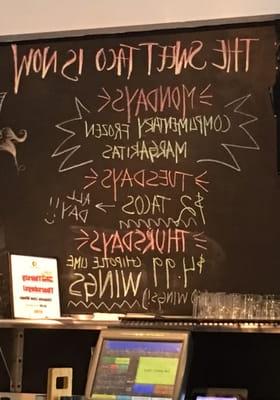 THE SWEET TACO IS NOW
MONDAYS
COMPLIMENTARY FROZEN
MARGARITAS
TUESDAYS
$2 TACOS
ALL
DAY!!
THURSDAYS
$4.99 CHIPOTLE LIME
WINGS
WINGS!)